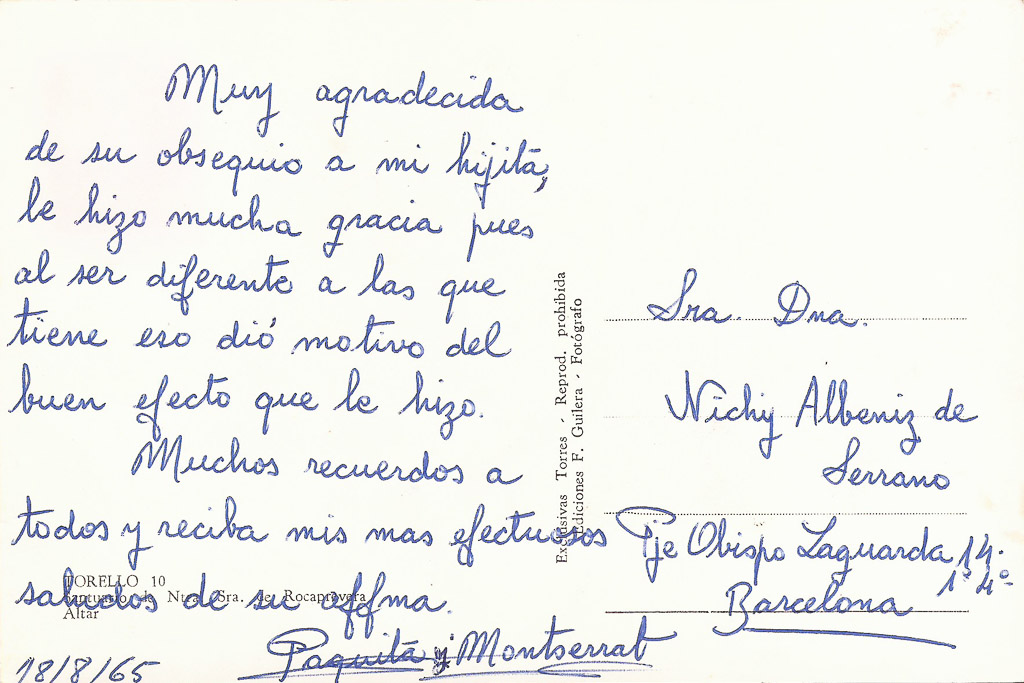 Muy agradecida
de su obsequio a mi hijita,
le hizo mucha gracia pues
al ser diferente a las que
tiene eso dió motivo del
buen efecto que le hizo.
Muchos recuerdos a
todos y reciba mis mas efectuosos
saludos de su affma.
Paquita y Montserrat
18/8/65
TORELLO 10
Santuario de Ntra. Sra. de Rocaprevera
Altar
Exclusivas Torres - Reprod. prohibida
Ediciones F. Guilera - Fotógrafo
Sra. Dna.
Nichy Albeniz de
Serrano
Pje Obispo Laguarda 14.
1º 4º
Barcelona